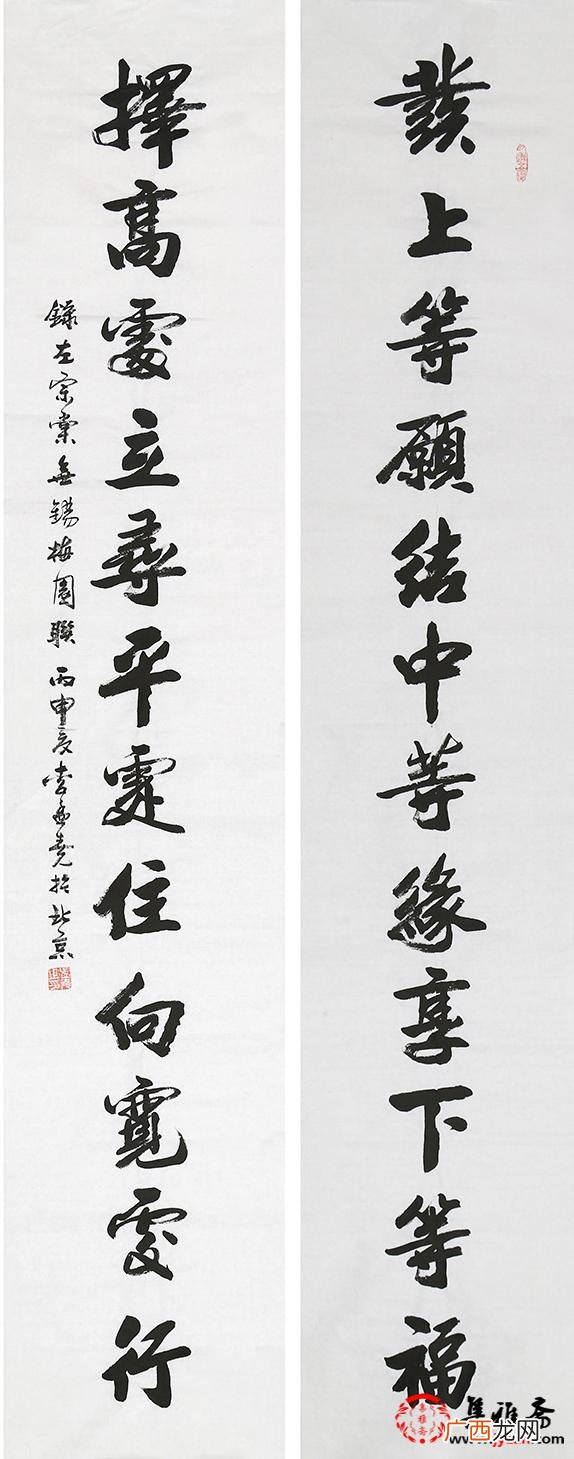 發上等願結中等緣享下等福
擇高處立尋平處住向寬處行
錄左宗棠無錫梅園聯 丙申夏李孟堯於北京
集雅斋
广西龙网